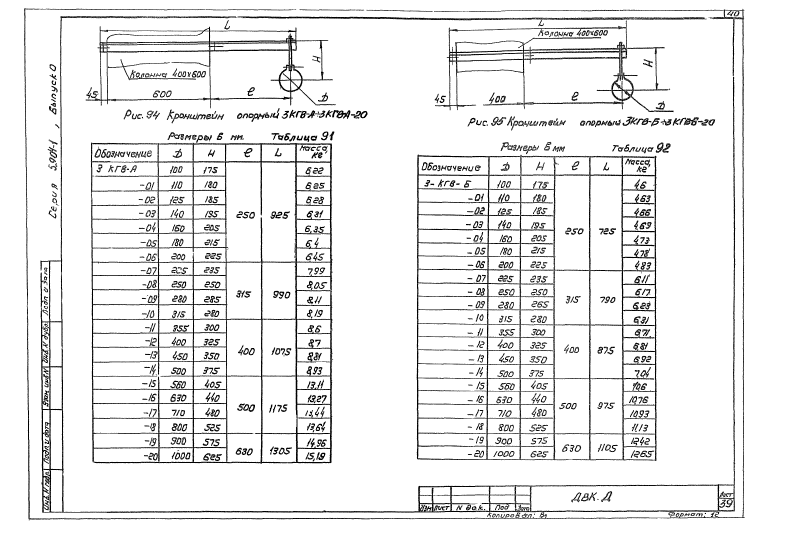 40
Серия 5.904-1, Выпуск 0
L
H
Колонна 400х600
45
600
e
D
Рис. 94 Кронштейн опорный 3КГВ-А÷3КГВА-20
Размеры в мм. Таблица 91
Обозначение D H e L Масса, кг
3 КГВ-А 100 175 250 925 6,22
-01 110 180 6,25
-02 125 185 6,28
-03 140 195 6,31
-04 160 205 6,35
-05 180 215 6,4
-06 200 225 6,45
-07 225 235 315 990 7,99
-08 250 250 8,05
-09 280 265 8,11
-10 315 280 8,19
-11 355 300 400 1075 8,6
-12 400 325 8,7
-13 450 350 8,81
-14 500 375 8,93
-15 560 405 500 1175 13,11
-16 630 440 13,27
-17 710 480 13,44
-18 800 525 13,64
-19 900 575 630 1305 14,96
-20 1000 625 15,19
L
Колонна 400х600
H
45
400
e
D
Рис. 95 Кронштейн опорный 3КГВ-Б÷3КГВБ-20
Размеры в мм Таблица 92
Обозначение D H e L Масса, кг
3-КГВ-Б 100 175 250 725 4,6
-01 110 180 4,63
-02 125 185 4,66
-03 140 195 4,69
-04 160 205 4,73
-05 180 215 4,78
-06 200 225 4,83
-07 225 235 315 790 6,11
-08 250 250 6,17
-09 280 265 6,23
-10 315 280 6,31
-11 355 300 400 875 6,71
-12 400 325 6,81
-13 450 350 6,92
-14 500 375 7,04
-15 560 405 500 975 10,6
-16 630 440 10,76
-17 710 480 10,93
-18 800 525 11,13
-19 900 575 630 1105 12,42
-20 1000 625 12,65
Инв.№ подл. Подп. и дата Взам. инв.№ Инв.№ дубл. Подп. и дата
Изм Лист № док. Под Дата
ДВК.Д
Лист
39
Копировал: Формат: 12